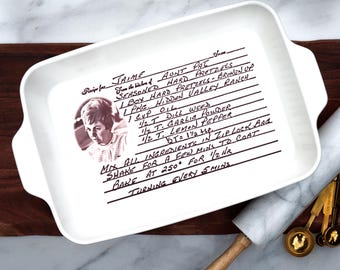 Recipe for JAIME
From the kitchen of AUNT DOT
SEASONED HARD PRETZELS
1 BOX HARD PRETZELS - BROKEN UP
1 PKG. HIDDEN VALLEY RANCH
1 CUP OIL
1/2 T. DILL WEED
1/2 T. GARLIC POWDER
1/2 T. LEMON PEPPER
MIX ALL INGREDIENTS IN ZIP LOCK BAG
SHAKE FOR A FEW MINS TO COAT
BAKE AT 250° FOR 1/2 HR
TURNING EVERY 5 MINS